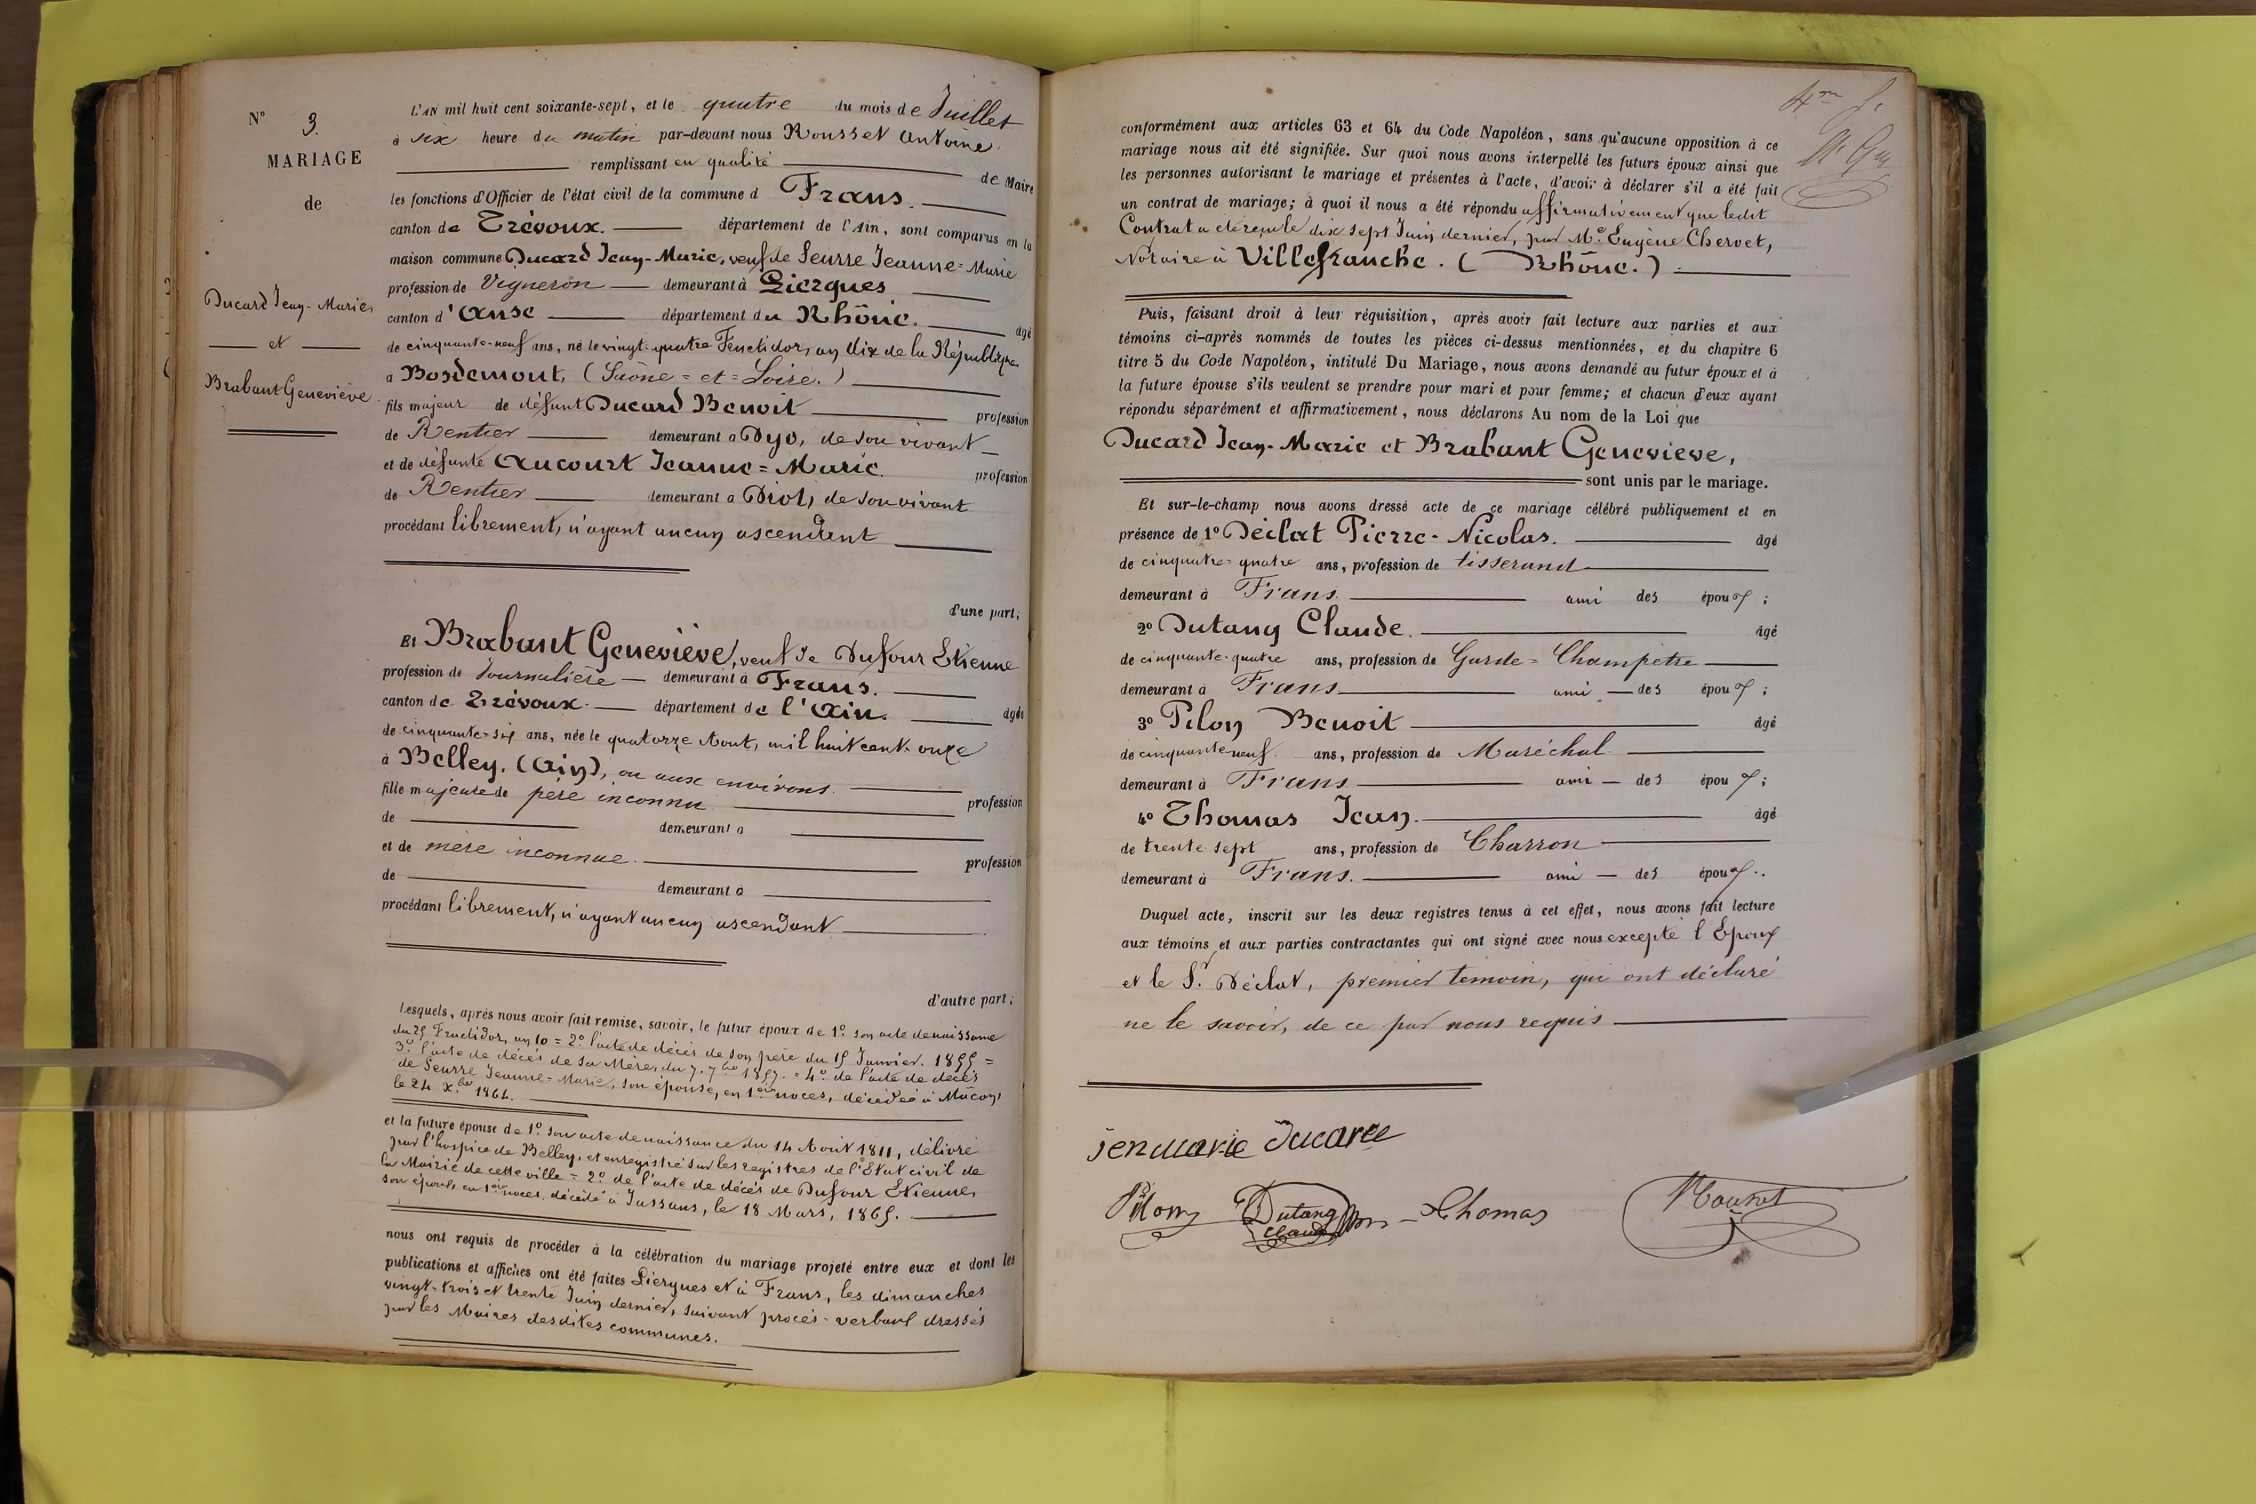 N° 3.
MARIAGE
de
Ducard Jean-Marie,
et
Brabant Geneviève.
L'AN mil huit cent soixante-sept, et le quatre du mois de Juillet
à six heure du matin par-devant nous Rousset Antoine
remplissant en qualité de Maire
les fonctions d'Officier de l'état civil de la commune d Frans.
canton de Trévoux. département de l'Ain, sont comparus en la
maison commune Ducard Jean-Marie, veuf de Seurre Jeanne=Marie
profession de Vigneron demeurant à Liergues
canton d'Anse département du Rhône. âgé
de cinquante-neuf ans, né le vingt-quatre Fructidor, an dix de la République
à Bosdemont, (Saône=et=Loire.)
fils majeur de défunt Ducard Benoit profession
de Rentier demeurant a Dyo, de son vivant
et de défunte Aucourt Jeanne=Marie. profession
de Rentier demeurant a Diot, de son vivant
procédant librement, n'ayant aucun ascendant
d'une part;
Et Brabant Geneviève, veuf de Dufour Etienne
profession de Journalière demeurant à Frans.
canton de Trévoux. département de l'Ain. âgée
de cinquante-six ans, née le quatorze Aout, mil huit cent onze
à Belley, (Ain), ou aux environs.
fille majeure de père inconnu profession
de demeurant a
et de mère inconnue. profession
de demeurant à
procédant librement, n'ayant aucun ascendant
d'autre part;
Lesquels, après nous avoir fait remise, savoir, le futur époux de 1° son acte de naissance
du 25 Fructidor, an 10 = 2° l'acte de décès de son père du 15 Janvier. 1855 =
3° l'acte de décès de sa Mère, du 7. 7bre 1857. = 4° de l'acte de décès
de Seurre Jeanne=Marie, son épouse, en 1ères noces, décédée à Mâcon,
le 24 Xbre 1864.
et la future épouse de 1° son acte de naissance du 14 Août 1811, délivré
par l'hospice de Belley, et enregistré sur les registres de l'Etat civil de
la Mairie de cette ville = 2° de l'acte de décès de Dufour Etienne,
son époux, en 1ères noces, décédé à Jassans, le 18 Mars, 1865.
nous ont requis de procéder à la célébration du mariage projeté entre eux et dont les
publications et affiches ont été faites Liergues et à Frans, les dimanches
vingt-trois et trente Juin dernier, suivant procès-verbaux dressés
par les Maires desdites communes.
conformément aux articles 63 et 64 du Code Napoléon, sans qu'aucune opposition à ce
mariage nous ait été signifiée. Sur quoi nous avons interpellé les futurs époux ainsi que
les personnes autorisant le mariage et présentes à l'acte, d'avoir à déclarer s'il a été fait
un contrat de mariage; à quoi il nous a été répondu affirmativement que ledit
Contrat a été reçu le dix sept Juin dernier, par Me Eugène Chervet,
Notaire à Villefranche. (Rhône.)
Puis, faisant droit à leur réquisition, après avoir fait lecture aux parties et aux
témoins ci-après nommés de toutes les pièces ci-dessus mentionnées, et du chapitre 6
titre 5 du Code Napoléon, intitulé Du Mariage, nous avons demandé au futur époux et à
la future épouse s'ils veulent se prendre pour mari et pour femme; et chacun d'eux ayant
répondu séparément et affirmativement, nous déclarons Au nom de la Loi que
Ducard Jean-Marie et Brabant Geneviève,
sont unis par le mariage.
Et sur-le-champ nous avons dressé acte de ce mariage célébré publiquement et en
présence de 1° Déclat Pierre-Nicolas. âgé
de cinquante-quatre ans, profession de tisserand
demeurant à Frans. ami des époux;
2° Dutang Claude. âgé
de cinquante-quatre ans, profession de Garde=Champêtre
demeurant à Frans ami des époux;
3° Pilon Benoit âgé
de cinquante neuf ans, profession de Maréchal
demeurant à Frans ami des époux;
4° Thomas Jean. âgé
de trente sept ans, profession de Charron
demeurant à Frans. ami des époux.
Duquel acte, inscrit sur les deux registres tenus à cet effet, nous avons fait lecture
aux témoins et aux parties contractantes qui ont signé avec nous excepté l'Epoux
et le Sr. Déclat, premier temoin, qui ont déclaré
ne le savoir, de ce par nous requis
jenmarie Ducard
Pilon Dutang Claude Thomas Rousset